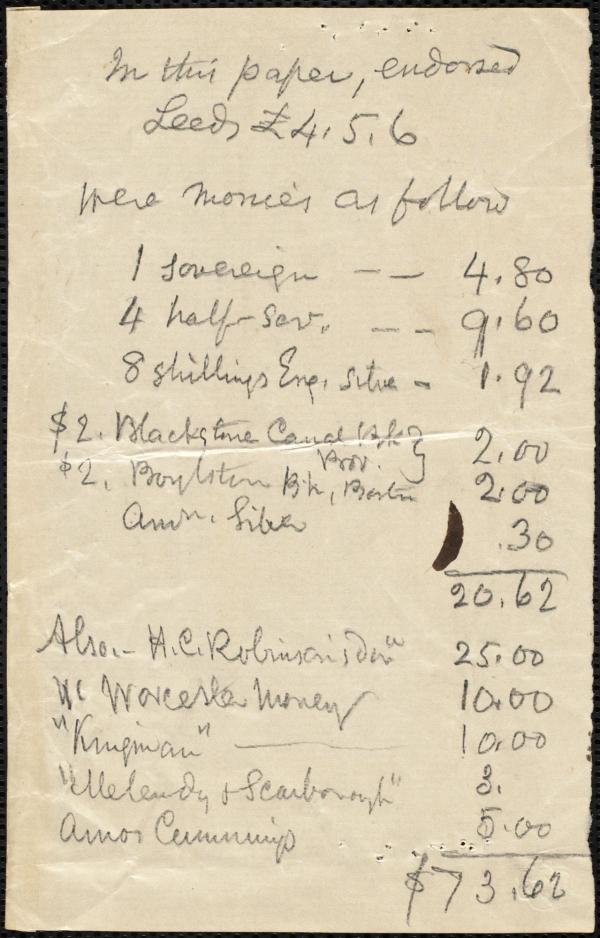 In this paper, endorsed
Leeds £4.5.6
were monies as follow
1 sovereign — — 4.80
4 half-sov. — — 9.60
8 shillings Eng. silve - 1.92
$2. Blackstone Canal Bk Prov. } 2.00
$2. Boylston Bk, Boston 2.00
Amn. Silver .30
20.62
Also.- H.C. Robinson's don" 25.00
Worcester Money 10.00
"Kingman" — 10.00
"Melendy & Scarborough" 3.
Amos Cummings 5.00
$73.62